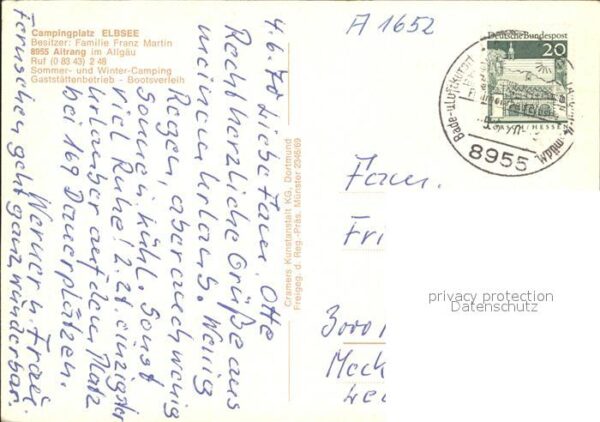 Campingplatz ELBSEE
Besitzer: Familie Franz Martin
8955 Aitrang im Allgäu
Ruf (0 83 43) 2 48
Sommer- und Winter-Camping
Gaststättenbetrieb - Bootsverleih
A 1652
Deutsche Bundespost
20
8955
4.6.70 Liebe Fam. Otte
Recht herzliche Grüße aus
meinem Urlaub. Wenig
Regen, aber auch wenig
Sonne, kühl. Sonst
viel Ruhe! z.Zt. einzigster
Urlauber auf dem Platz
bei 169 Dauerplätzen.
Werner u. Frau
Fernsehen geht ganz wunderbar.
Cramers Kunstanstalt KG, Dortmund
Freigeg. d. Reg.-Präs. Münster 2346/69
Fam.
Fri
3000
Meck
privacy protection
Datenschutz